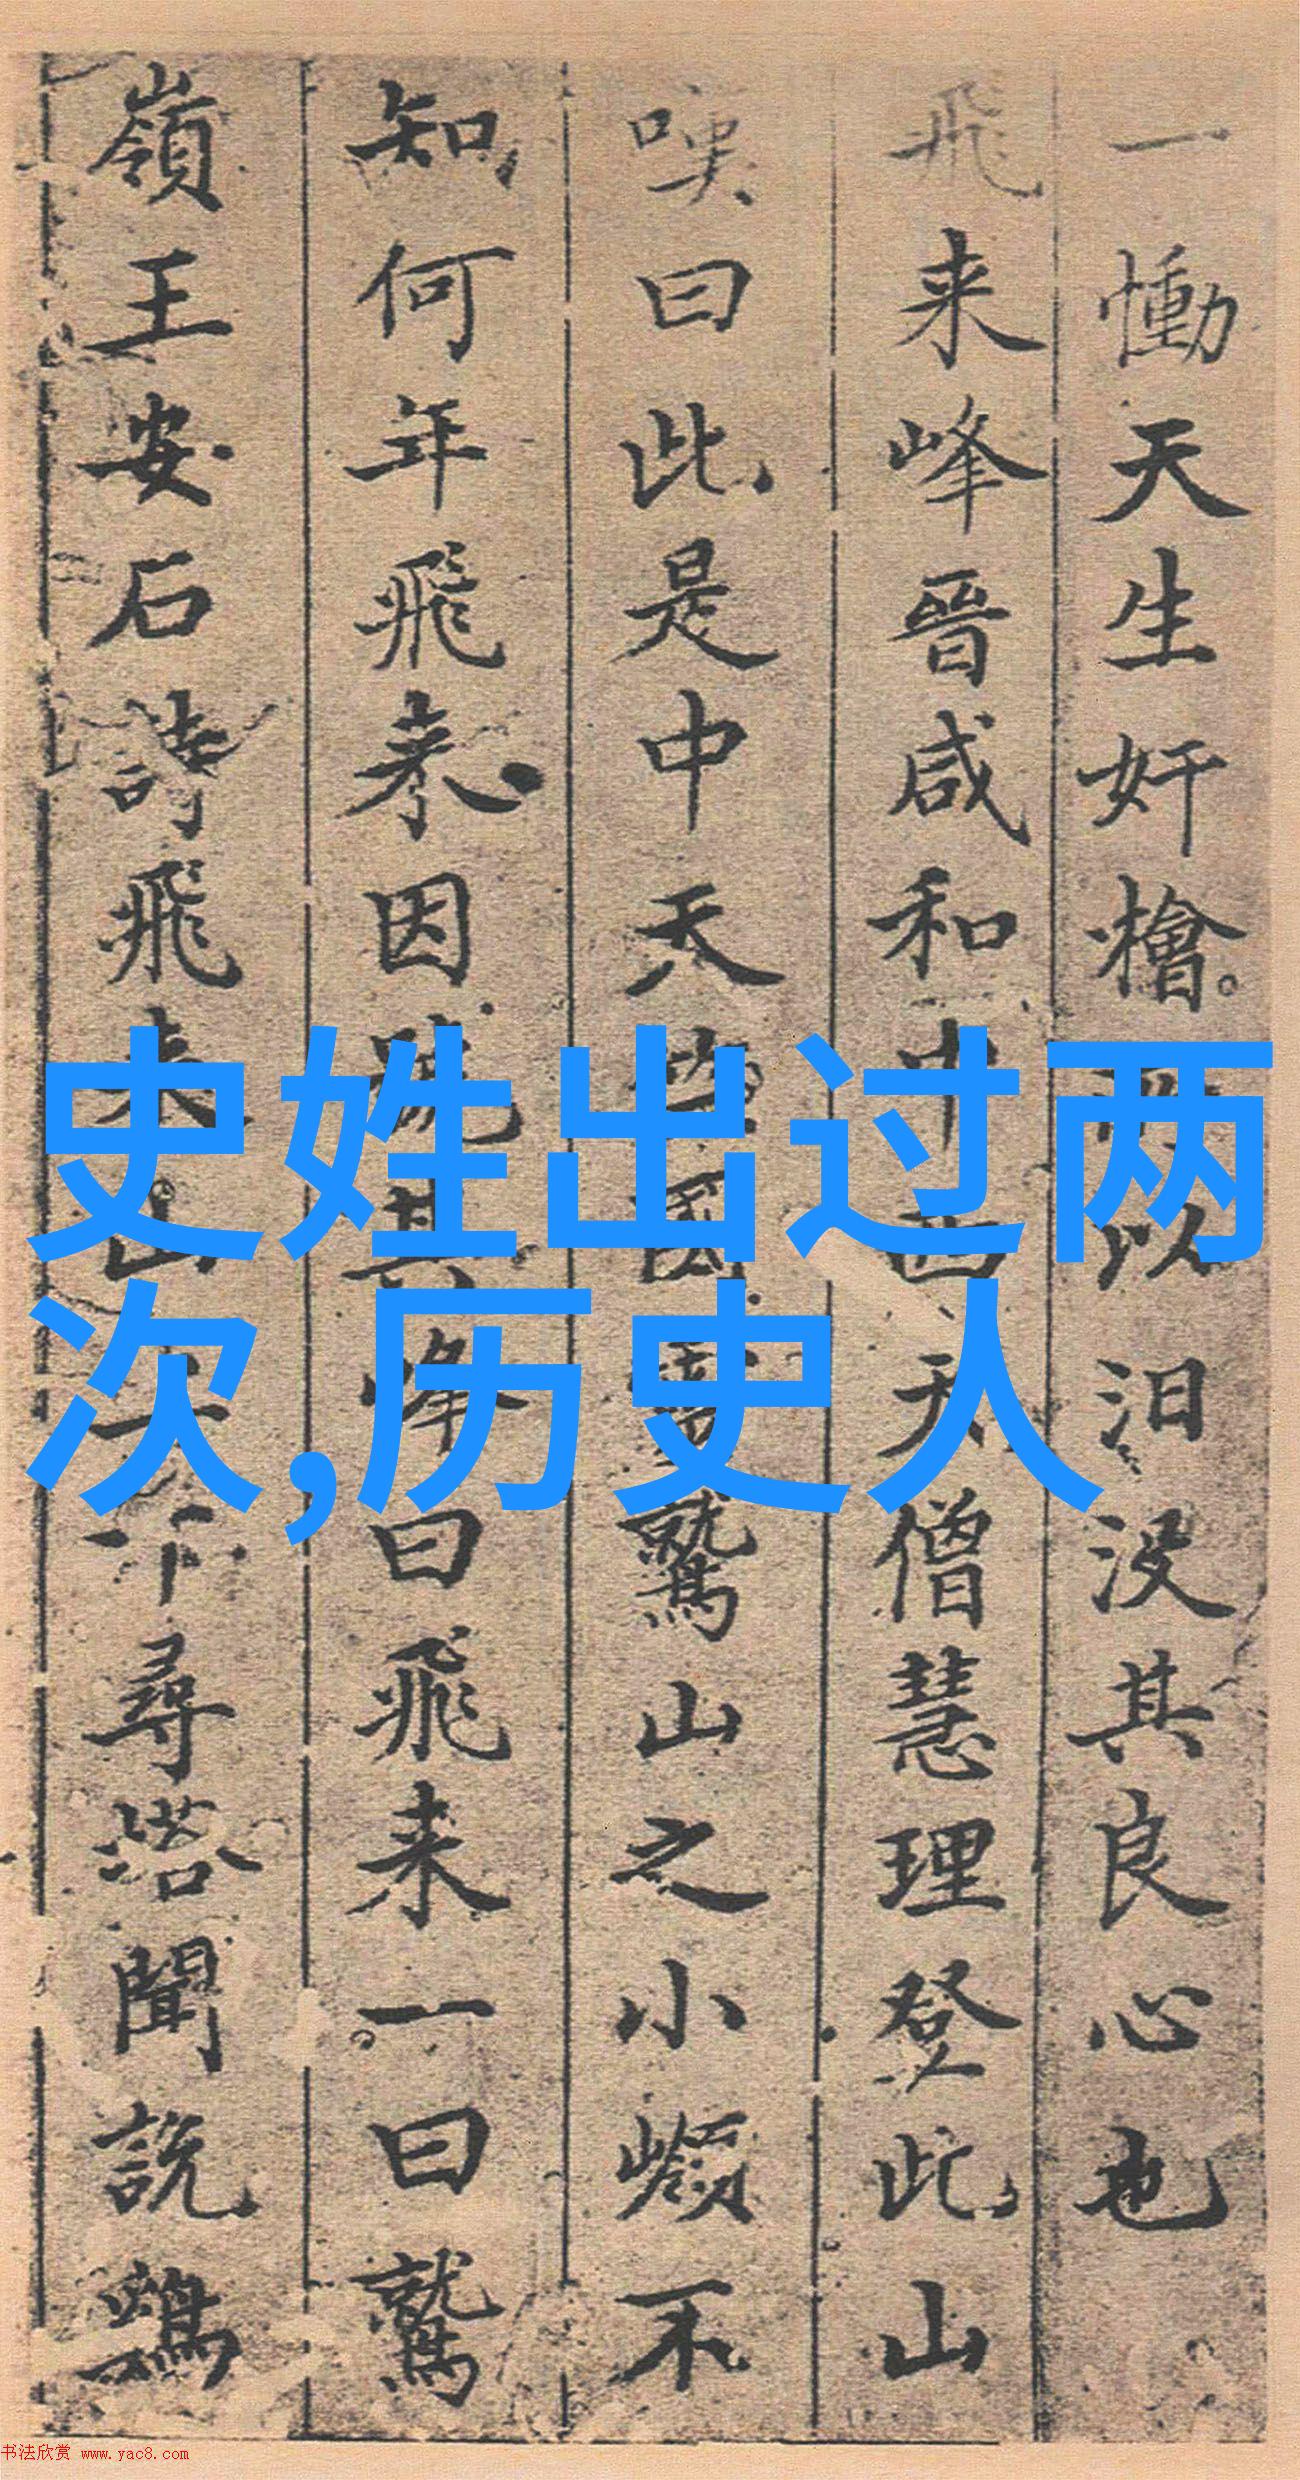 一慟天生奸檜 以汨沒其良心也
飛来峰晉咸和中西天僧慧理登此山
嘆曰此是中天 國靈鷲山之小嶺不
知何年飛来因號其峰曰飛来一曰鷲
嶺王安石詩飛来山上千尋塔聞說鷄
史姓出过两
次,历史人
书法欣赏 www.yac8.com